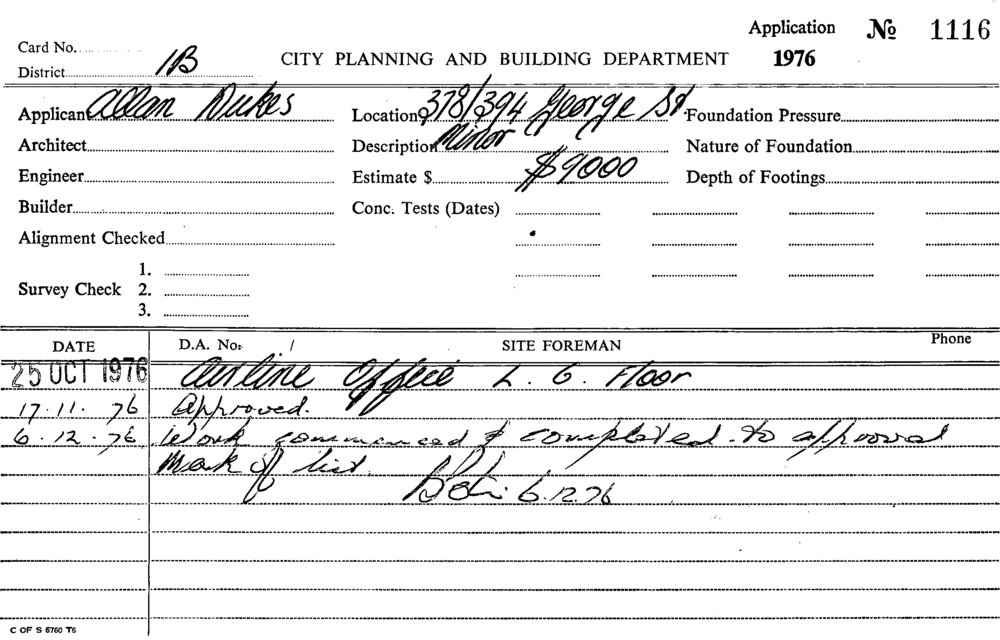 Application № 1116
Card No.
District 1B CITY PLANNING AND BUILDING DEPARTMENT 1976
Applicant Allan Dukes Location 378/394 George St Foundation Pressure
Architect Description Minor Nature of Foundation
Engineer Estimate $ $9000 Depth of Footings
Builder Conc. Tests (Dates)
Alignment Checked
1.
Survey Check 2.
3.
DATE D.A. No. / SITE FOREMAN Phone
25 OCT 1976 Airline Office L. G. Floor
17.11.76 Approved.
6.12.76 Work commenced & completed to approval
Mark off list. 6.12.76
C OF S 6750 T6